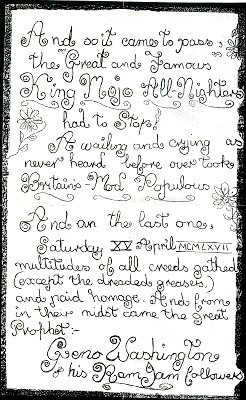 And so it came to pass,
the Great and Famous
King Mojo All-Nighters
had to Stop!
A wailing and crying as
never heard before over took
Britains Mod Populous
And on the last one,
Saturday XV April MCMLXVII
multitudes of all creeds gathered
(except the dreaded greasers,)
and paid homage. And from
in their midst came the Great
Prophet:-
Geno Washington
& his Ram Jam followers